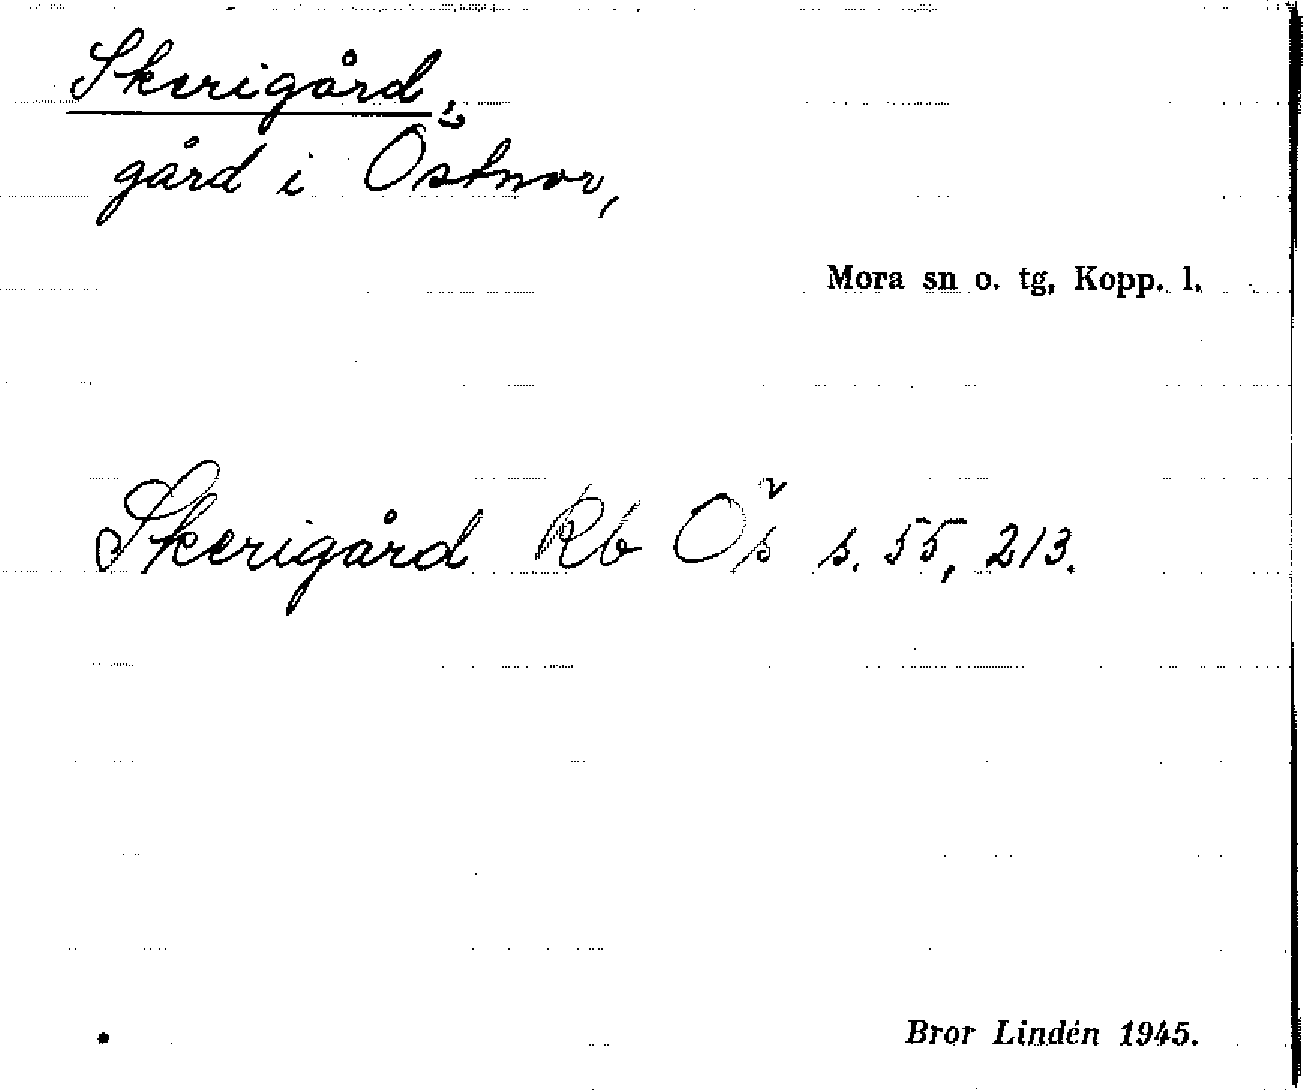 Skerigård,
gård i Östnor,
Mora sn o. tg, Kopp. l.
Skerigård Rb Ös s. 55, 213.
Bror Lindén 1945.